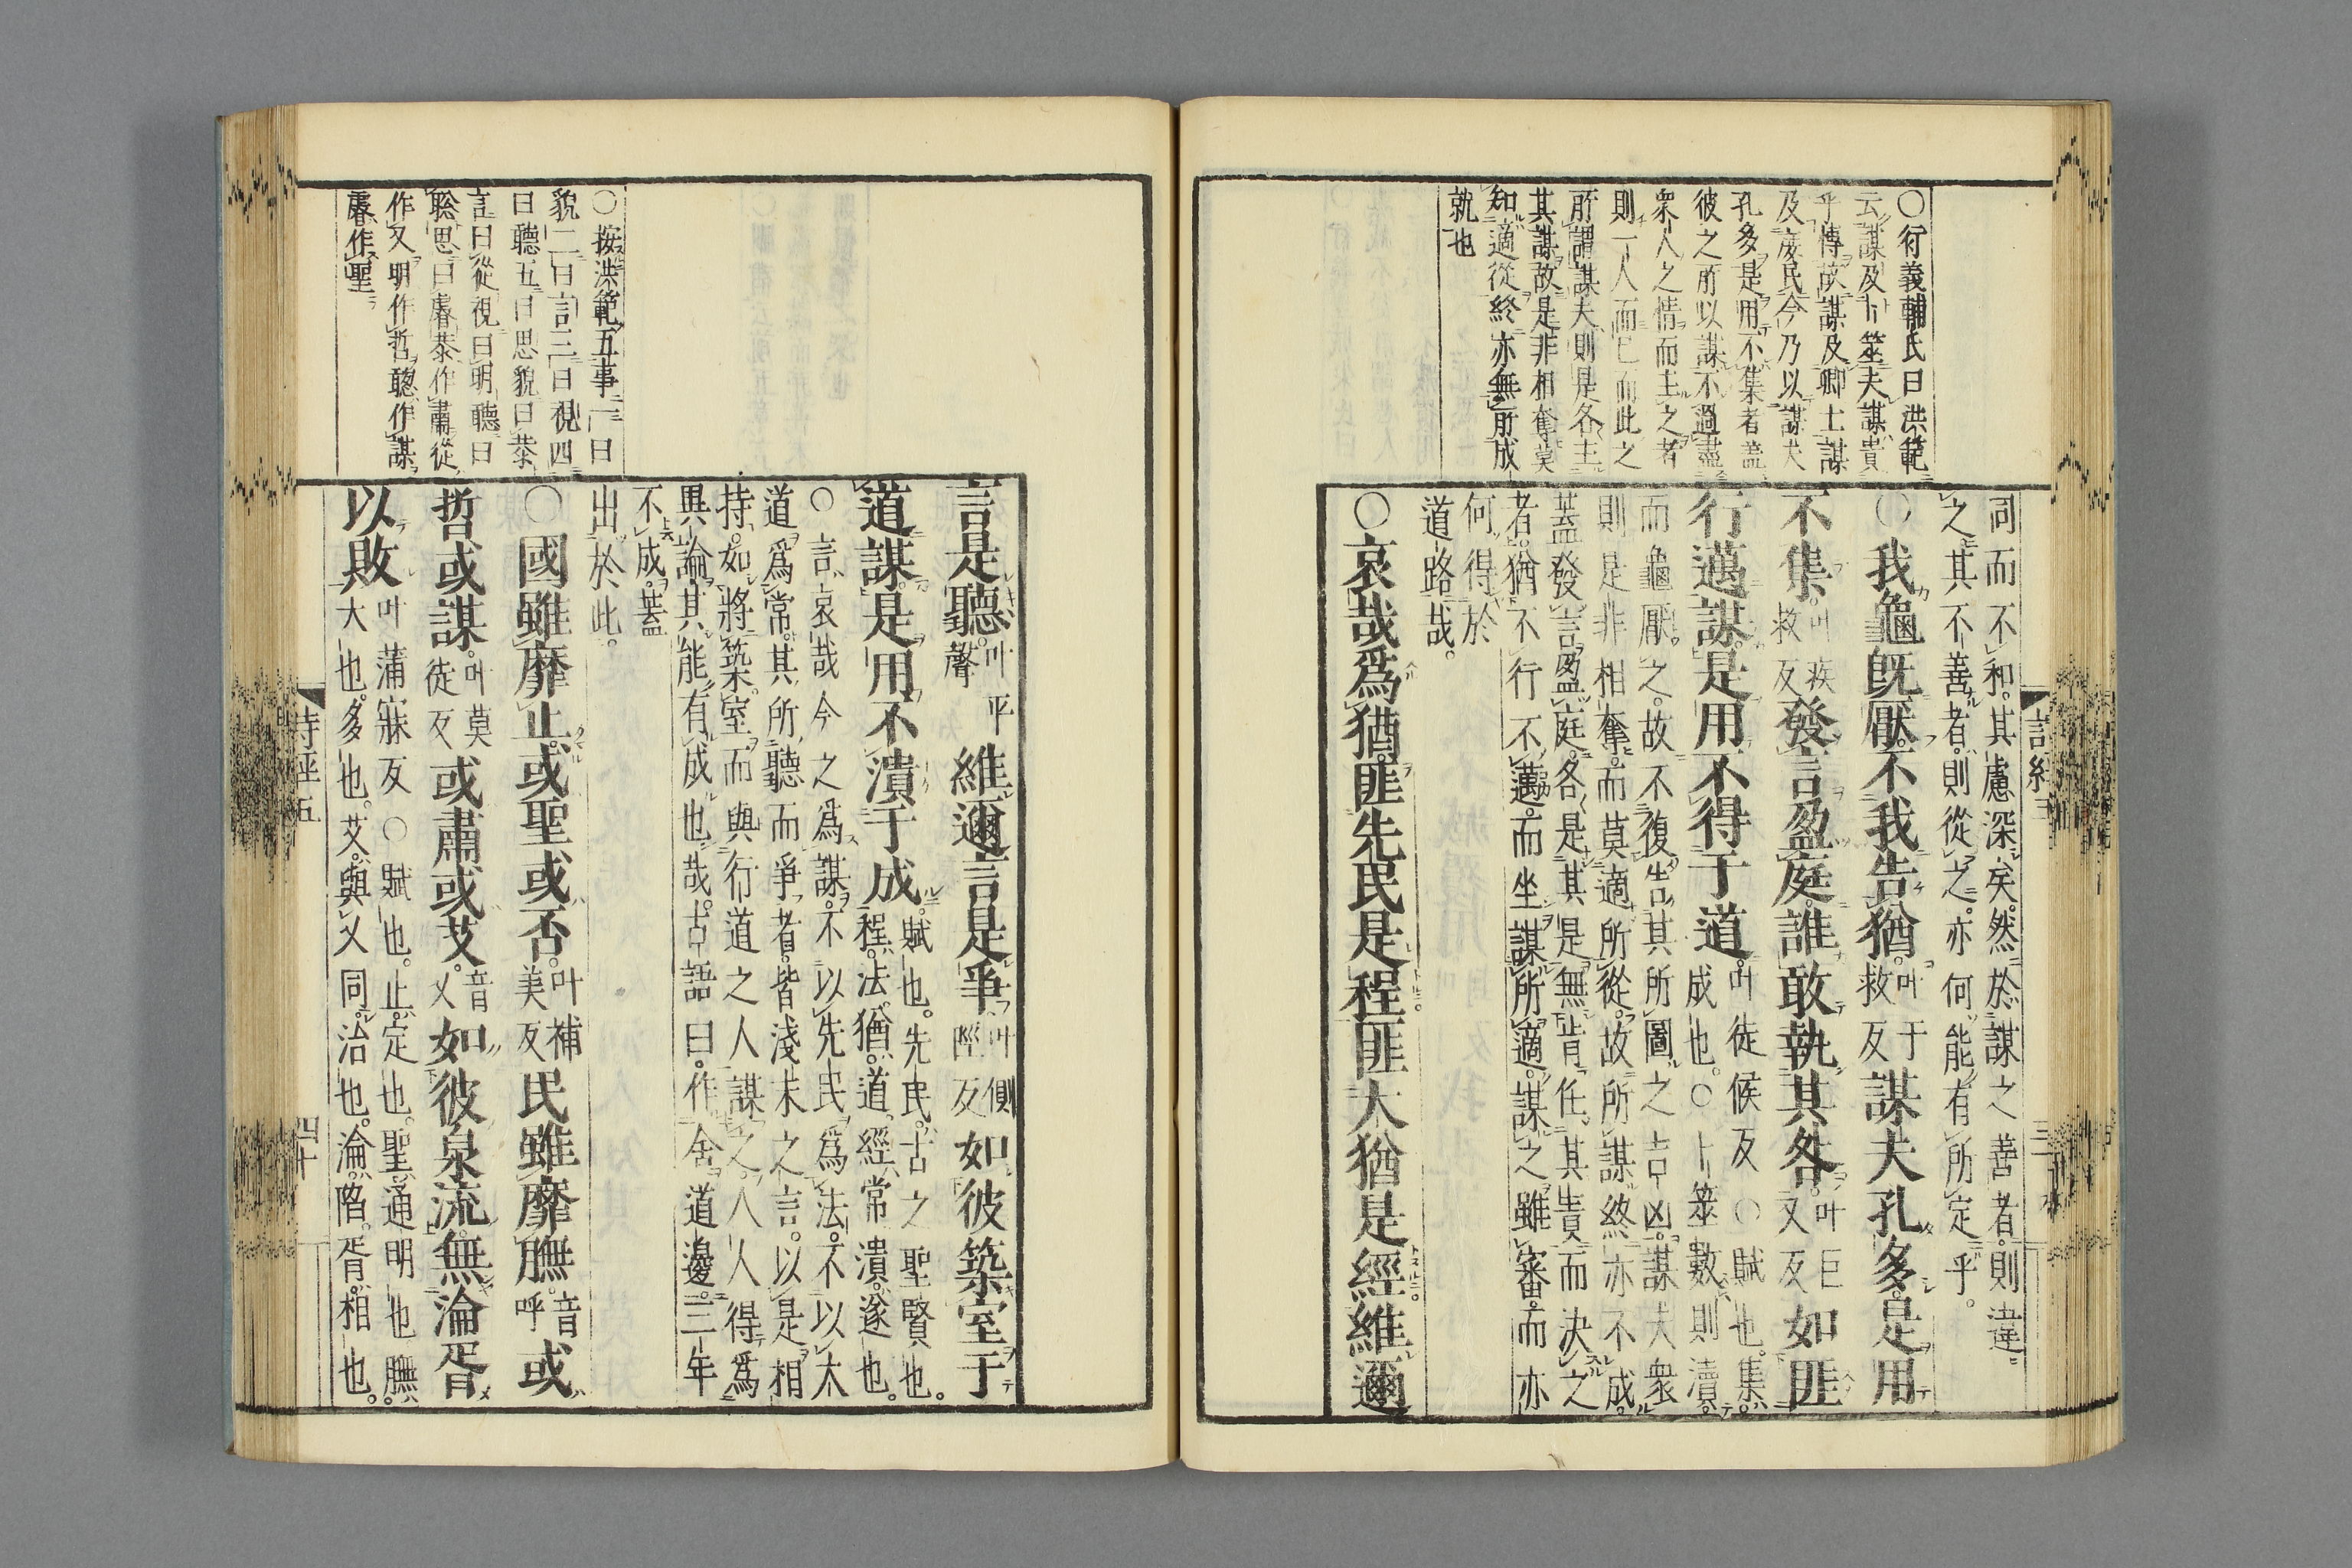 ○衍義輔氏曰洪範
云謀及卜筮夫謀貴
乎博故謀及卿士謀
及庶民今乃以謀夫
孔多是用不集者蓋
彼之所以謀不過盡
衆人之情而主之者
則一人而已而此之
所謂謀夫則是各主
其謀故是非相奪莫
知適從終亦無所成
就也
同而不和。其慮深矣。然於謀之善者。則違
之其不善者。則從之。亦何能有所定乎。
○我龜旣厭。不我告猶。叶于救反謀夫孔多。是用
不集。叶疾救反發言盈庭。誰敢執其咎。叶巨又反如匪
行邁謀。是用不得于道。叶徒候反○賦也。集。成也。○卜筮數則瀆。
而龜厭之。故不復告其所圖之吉凶。謀夫衆
則是非相奪。而莫適所從。故所謀終亦不成。
蓋發言盈庭。各是其是。無肯任其責而決之
者。猶不行不邁。而坐謀所適。謀之雖審。而亦
何得於
道路哉。
○哀哉爲猶。匪先民是程。匪大猶是經。維邇
言是聽。叶平聲維邇言是爭。叶側陘反如彼築室于
道謀。是用不潰于成。賦也。先民。古之聖賢也。程。法。猶。道。經。常。潰。遂也。
○言哀哉今之爲謀。不以先民爲法。不以大
道爲常。其所聽而爭者。皆淺末之言。以是相
持。如將築室。而與行道之人謀之。人人得爲
異論。其能有成也哉。古語曰。作舍道邊。三年
不成。蓋
出於此。
○按洪範五事一曰
貌二曰言三曰視四
曰聽五曰思貌曰恭
言曰從視曰明聽曰
聡思曰睿恭作肅從
作乂明作哲聰作謀
睿作聖
○國雖靡止。或聖或否。叶補美反民雖靡膴。音呼或
哲或謀。叶莫徒反或肅或艾。音乂如彼泉流。無淪胥
以敗叶蒲寐反○賦也。止。定也。聖。通明也膴。大也。多也。艾。與乂同。治也。淪。陷。胥。相也。
詩經五
四十